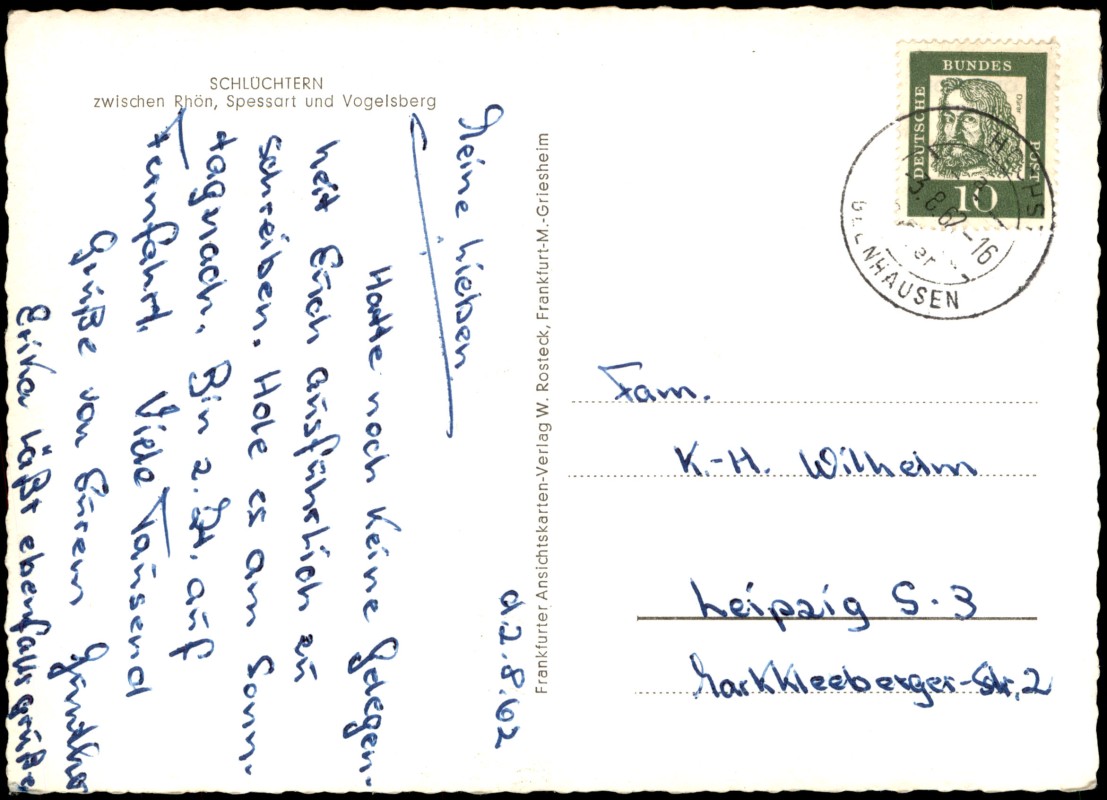 SCHLÜCHTERN
zwischen Rhön, Spessart und Vogelsberg
d. 2.8.62
Meine Lieben
Hatte noch keine Gelegen-
heit Euch ausführlich zu
schreiben. Hole es am Sonn-
tag nach. Bin z. Zt. auf
Fernfahrt. Viele Tausend
Grüße von Eurem Günther
Erika läßt ebenfalls grüßen
Frankfurter Ansichtskarten-Verlag W. Rosteck, Frankfurt-M.-Griesheim
DEUTSCHE
BUNDES
POST
10
3.8.62-16
Fam.
K.-H. Wilhelm
Leipzig S-3
Markkleeberger-Str. 2